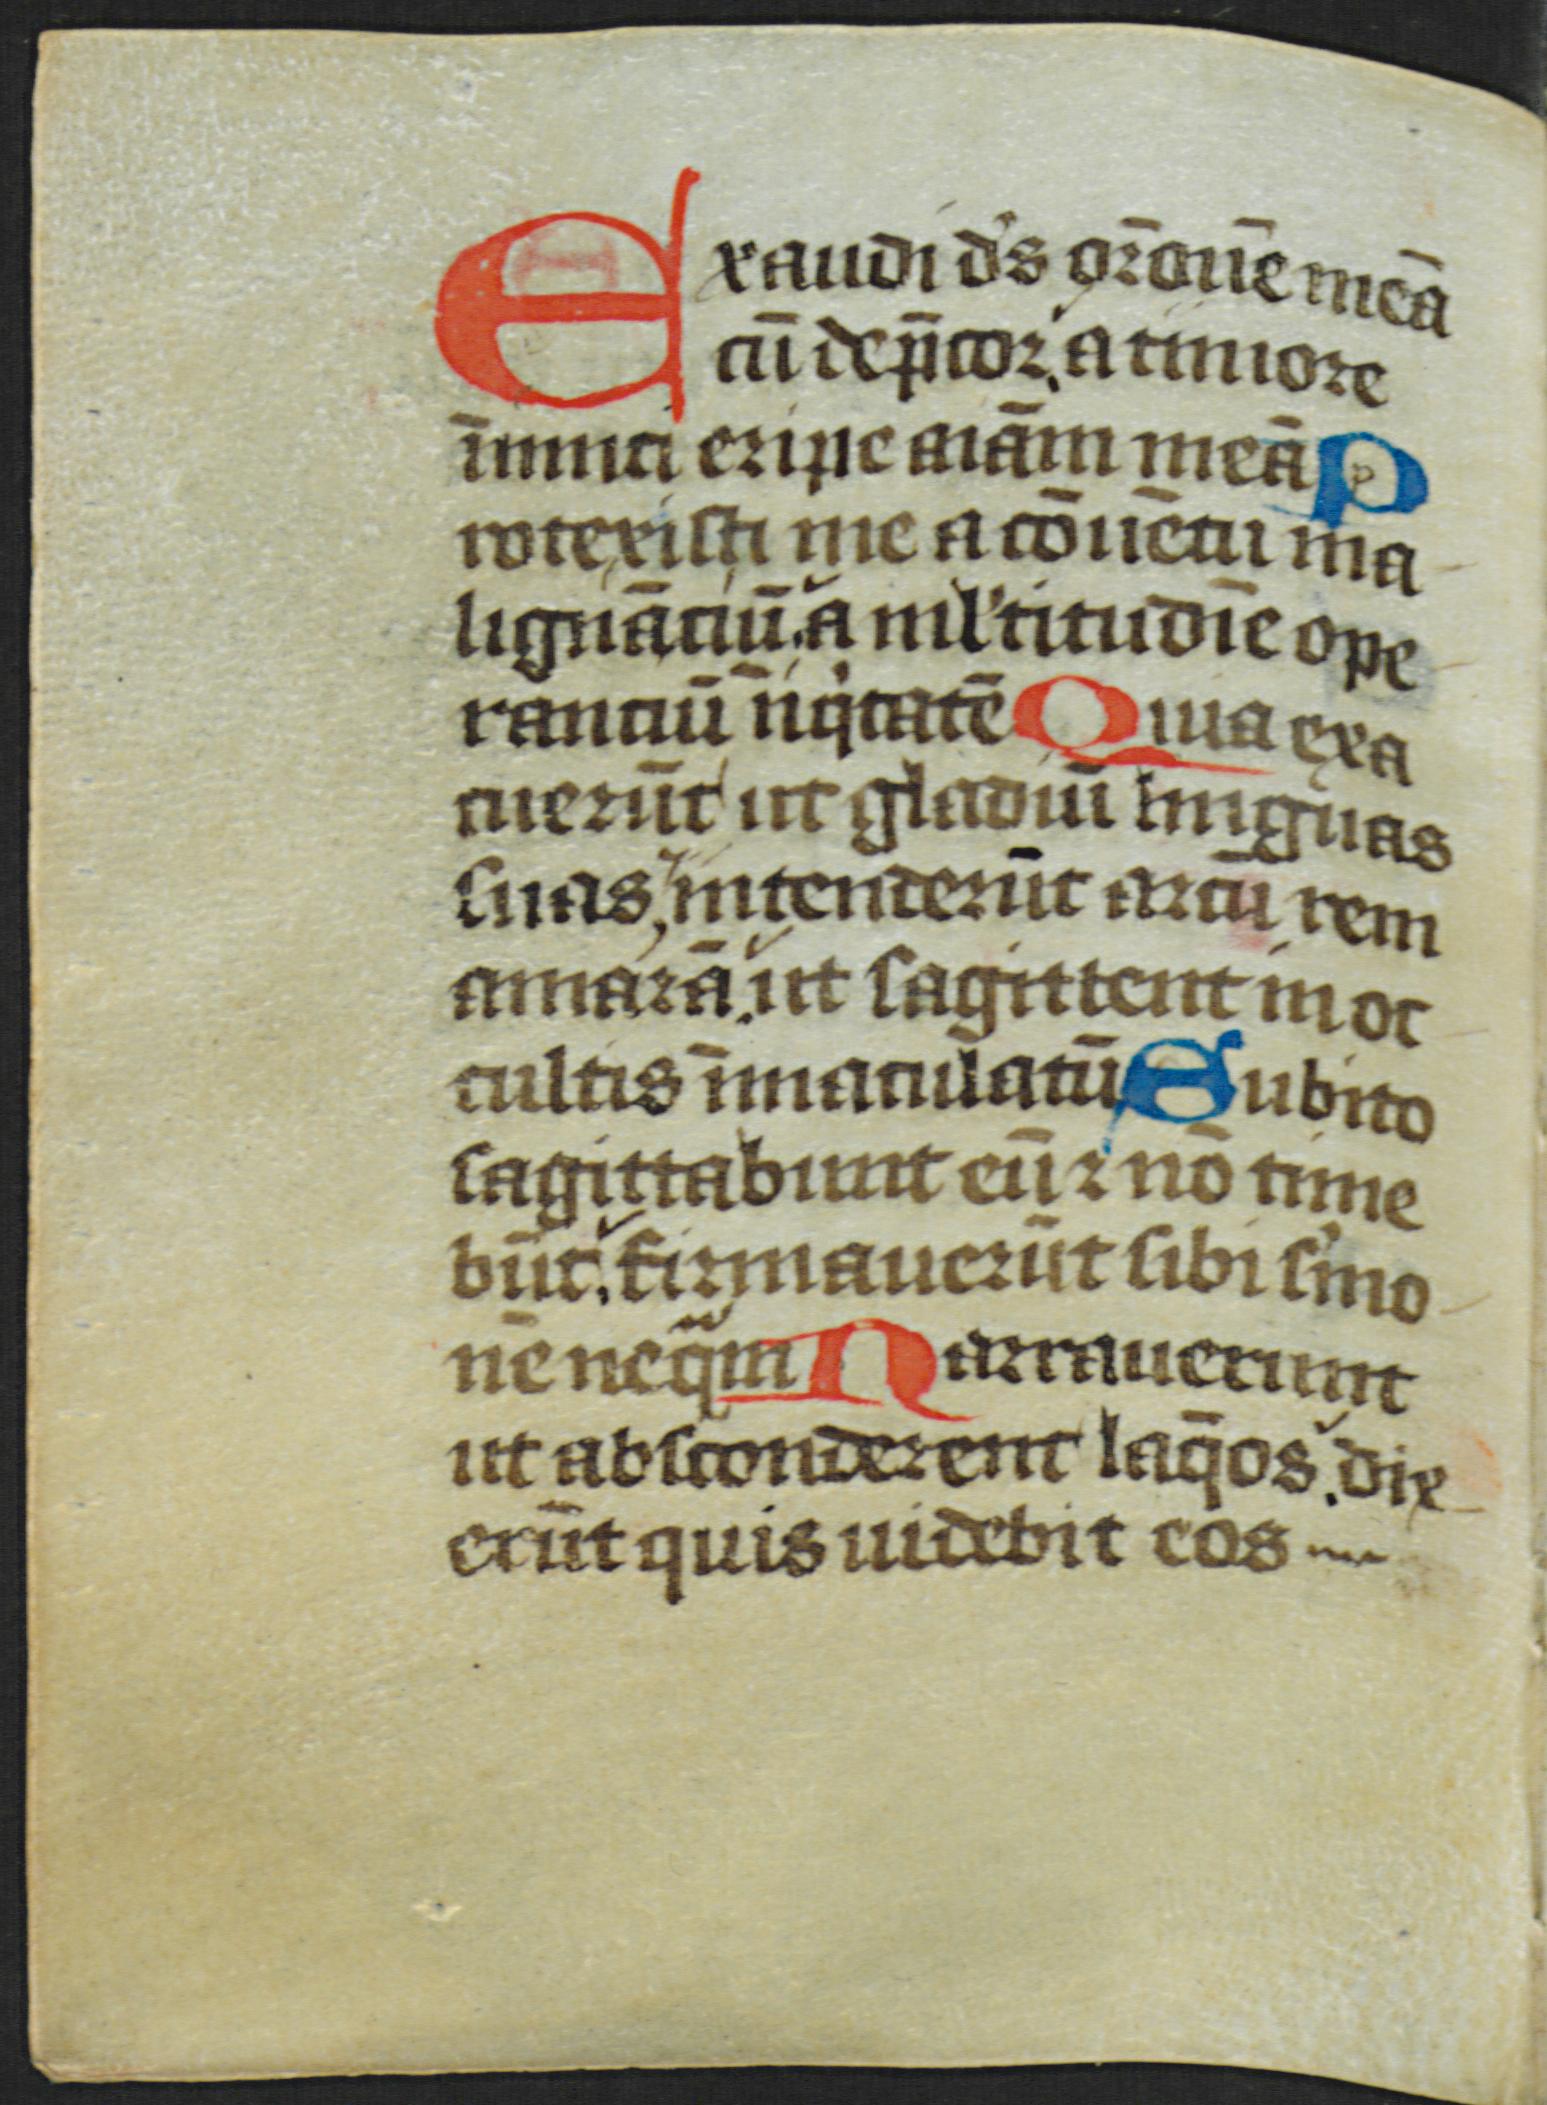 Exaudi d's or̄oneꝫ meā
cū dep̄cor, a timore
īimici eripe aīam meā P
rotexisti me a cōuētu ma
lignātiū, a ml'titudīe ope
rantiū īiq̇tatē Quia exa
cuerūt ut gladiū linguas
suas, intenderūt arcū rem
amarā, ut sagittent in oc
cultis īmaculatū Subito
sagittabunt eū ⁊ nō time
būt, firmauerūt sibi s'mo
nē neq̄m Narrauerunt
ut absconderent laq̄os, dix
erūt quis uidebit eos